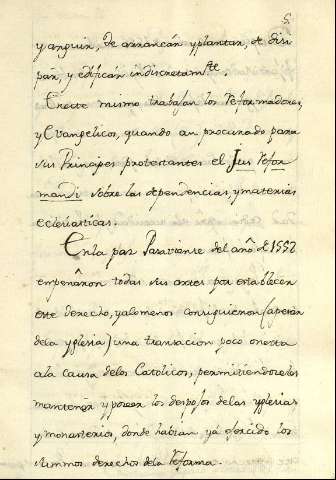 5
y anguir, de arrancar y plantar, de disi-
par, y edificar indiscretam.te
En este mismo trabajan los Reformadores,
y Evangelicos, quando an procurado para
sus Principes protestantes el Jus Refor
mandi sobre las dependencias, y materias
eclesiasticas.
En la paz Pasaviente del año de 1552
empeñaron todas sus artes por establecer
este derecho, y alomenos consiguieron (apesar
de la yglesia) una transacion poco onesta
a la causa delos Catolicos, permitiendoseles
mantener y poseer los despojos de las yglesias
y monasterios, donde habian yá ejercido los
summos derechos dela Reforma.